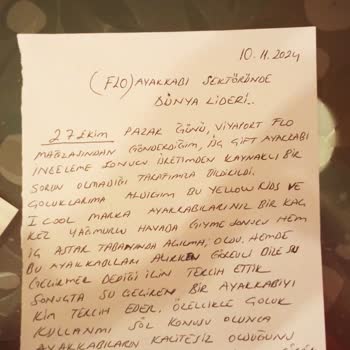 10.11.2024
(FLO) AYAKKABI SEKTÖRÜNDE
DÜNYA LİDERİ..
27 EKİM PAZAR GÜNÜ, VİYAPORT FLO
MAĞZASINDAN GÖNDERDİĞİM, ÜÇ ÇİFT AYAKKABI
İNCELEME SONUCU ÜRETİMDEN KAYNAKLI BİR
SORUN OLMADIĞI TARAFIMLA BİLDİRİLDİ.
ÇOCUKLARIMA ALDIĞIM BU YELLOW KIDS VE
I COOL MARKA AYAKKABILARINIZ BİR KAÇ
KEZ YAĞMURLU HAVADA GİYME SONUCU HEM
İÇ ASTAR TABANINDA AÇILMA, OLDU. HEMDE
BU AYAKKABILARI ALIRKEN GÖREVLİ BİLE SU
GEÇİRMEZ DEDİĞİ İÇİN TERCİH ETTİK
SONUÇTA SU GEÇİREN BİR AYAKKABIYI
KİM TERCİH EDER. ÖZELLİKLE ÇOCUK
KULLANIMI SÖZ KONUSU OLUNCA
AYAKKABILARIN KALİTESİZ OLDUĞUNU